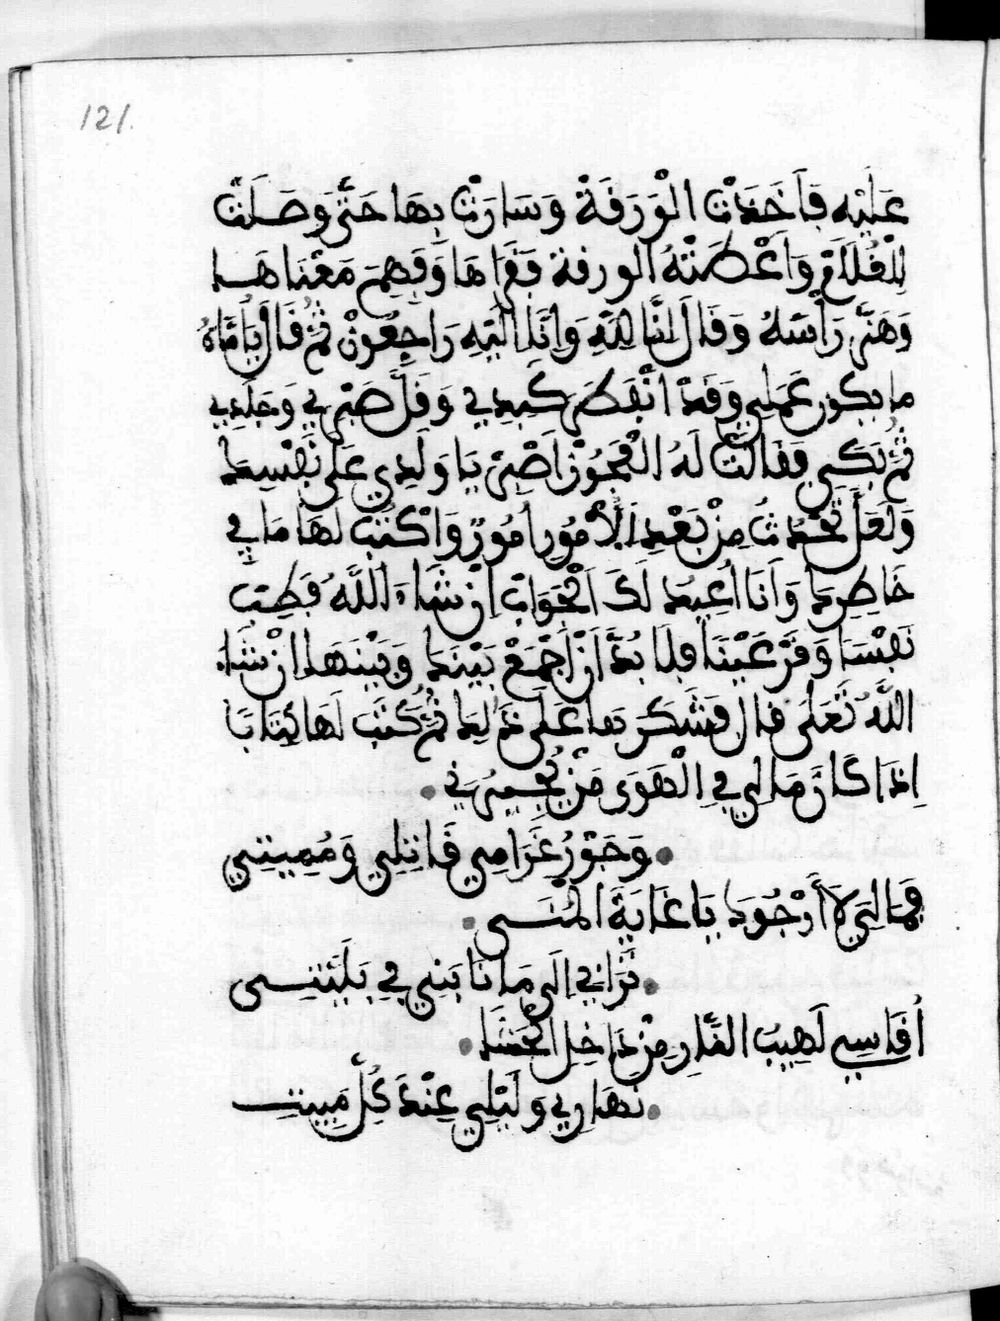 121.
عَلَيْهِ فَأَخَذَتْ الْوَرَقَةْ وَسَارَتْ بِهَا حَتَّى وَصَلَتْ
لِلْغُلَامْ وَاَعْطَتْهُ الورقة فَقَرَاهَا وَفَهِمَ مَعْنَاهَا
وَهَزَّ رَأْسَهُ وَقَالَ اِنَّا لِلَّهِ وَاِنَّا اِلَيْهِ رَاجِعُونْ ثُمَّ قَالْ يَا أُمَّاهُ
ما يكون عَمَلِي وَقَدْ اْنْفَطَرَ كَبِدِي وَقَلَّ صَبْرِي وَجَلَدِي
ثُمَّ بَكَى فَقَالَتْ لَهُ الْعَجُوزْ اَصْبِرْ يَا وَلَدِي عَلَى نَفْسِكَ
وَلَعَلَّ تَحْدُثُ مِنْ بَعْدِ الْأُمُورِ أُمُورٌ وَاْكْتُبْ لَهَا مَا فِي
خَاطِرِكَ وَاَنَا اُعِيدُ لَكَ اَلْجَوَابْ اِنْ شَاءَ اللَّهُ فَطِبْ
نَفْسًا وَقَرَّ عَيْنًا فلا بُدَّ اَنْ اَجْمَعْ بَيْنَكَ وَبَيْنَهَا اِنْ شَاءَ
اللَّهُ تَعَلَى قال فشَكَرَهَا عَلَى ذَلِكَ ثُمَّ كَتَبَ لَهَا كِتَابًا
اِذَا كَانَ مَا لِي فِي الْهَوَى مَنْ يُجِيرُنِي
وَجَوْرُ غَرَامِي قَاتِلِي وَمُمِيتَتِي
فَمَا لِيَ لَا أَرْجُوكَ يَا غَايَةَ الْمُنَى
تَرَانِي اِلَى مَا نَابَنِي فِي بَلِيَّتِي
اُقَاسِي لَهِيبَ النَّارِ مِنْ دَاخِلِ الْحَشَا
نَهَارِي وَلَيْلِي عِنْدَ كُلِّ مَبِيتِ